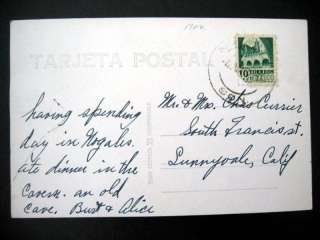 TARJETA POSTAL
having spending
day in Nogales.
ate dinner in the
Cavern. an old
cave. Bud & Alice
Mr. & Mrs. Chas Currier
South Francis st.
Sunnyvale, Calif
10